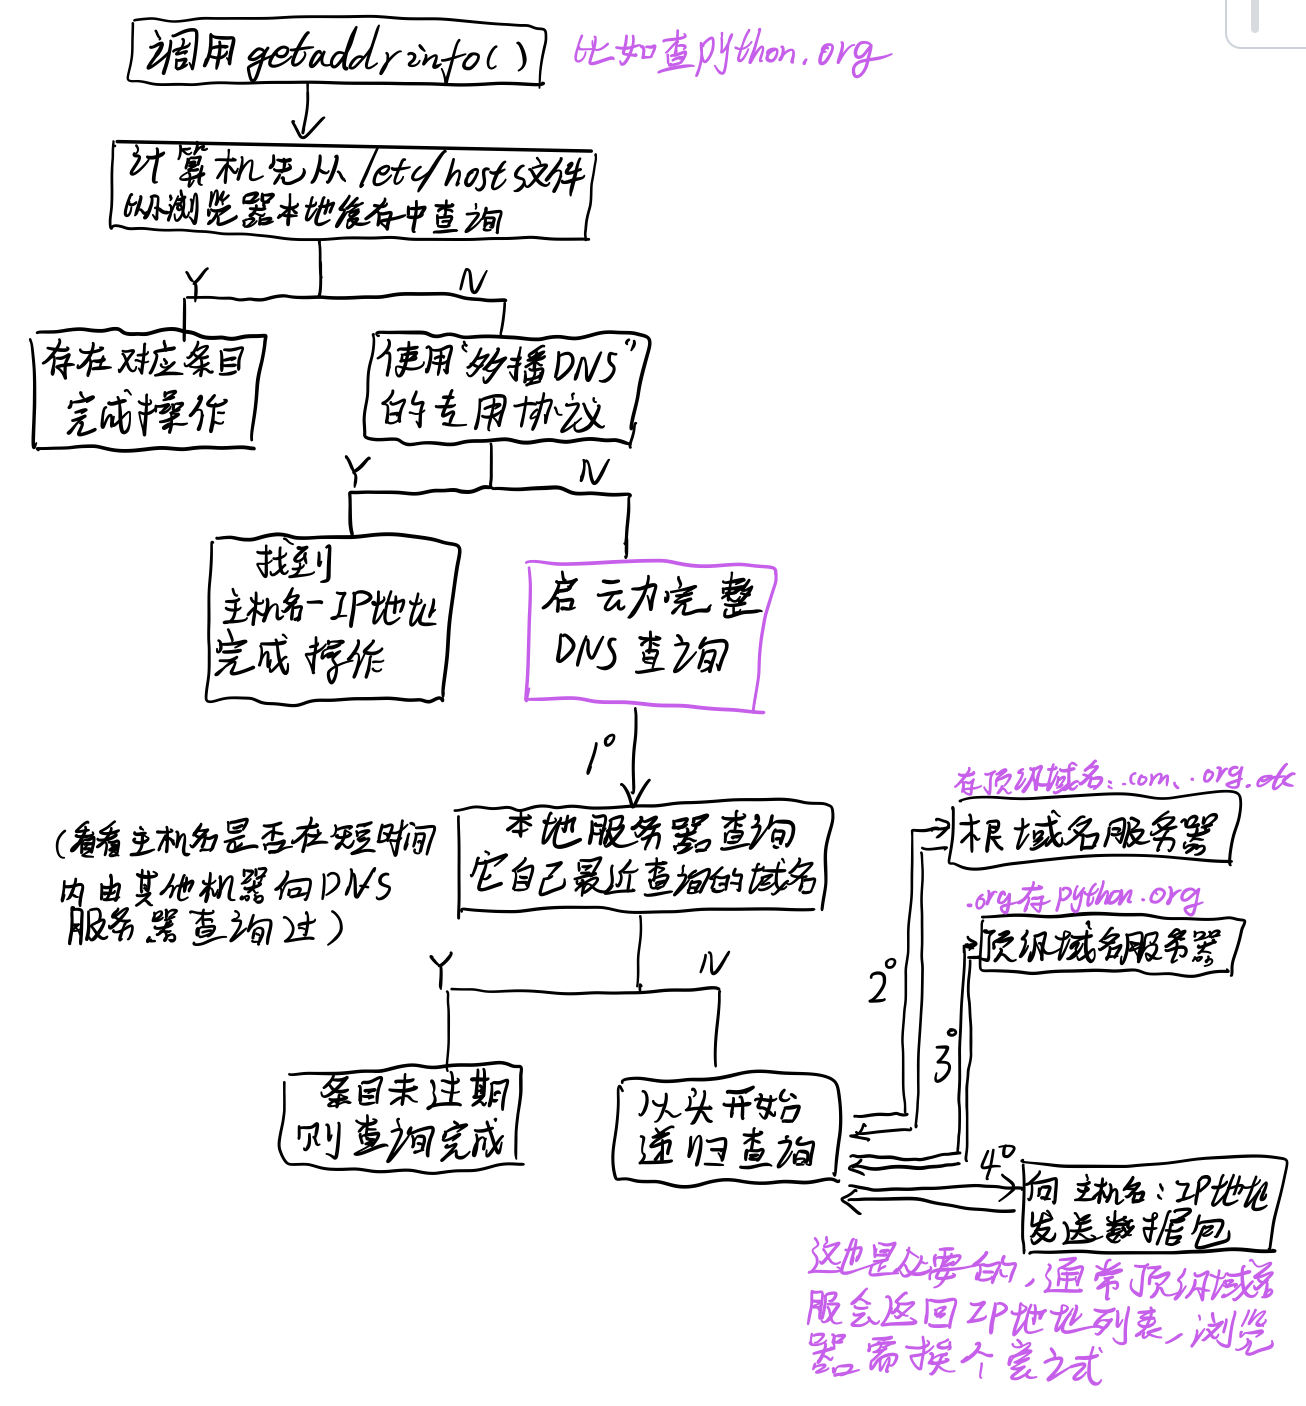 调用getaddrinfo()
比如查python.org
计算机先从/etc/hosts文件
以及浏览器本地缓存中查询
Y
N
存在对应条目
完成操作
使用"多播DNS"
的专用协议
Y
N
找到
主机名-IP地址
完成操作
启动完整
DNS查询
1°
(看看主机名是否在短时间
内由其他机器向DNS
服务器查询过)
本地服务器查询
它自己最近查询的域名
Y
N
条目未过期
则查询完成
从头开始
递归查询
存顶级域名:.com、.org.etc
根域名服务器
.org存python.org
顶级域名服务器
2°
3°
4°
向主机名:IP地址
发送数据包
这也是必要的,通常顶级域名
服会返回IP地址列表,浏览
器需挨个尝试